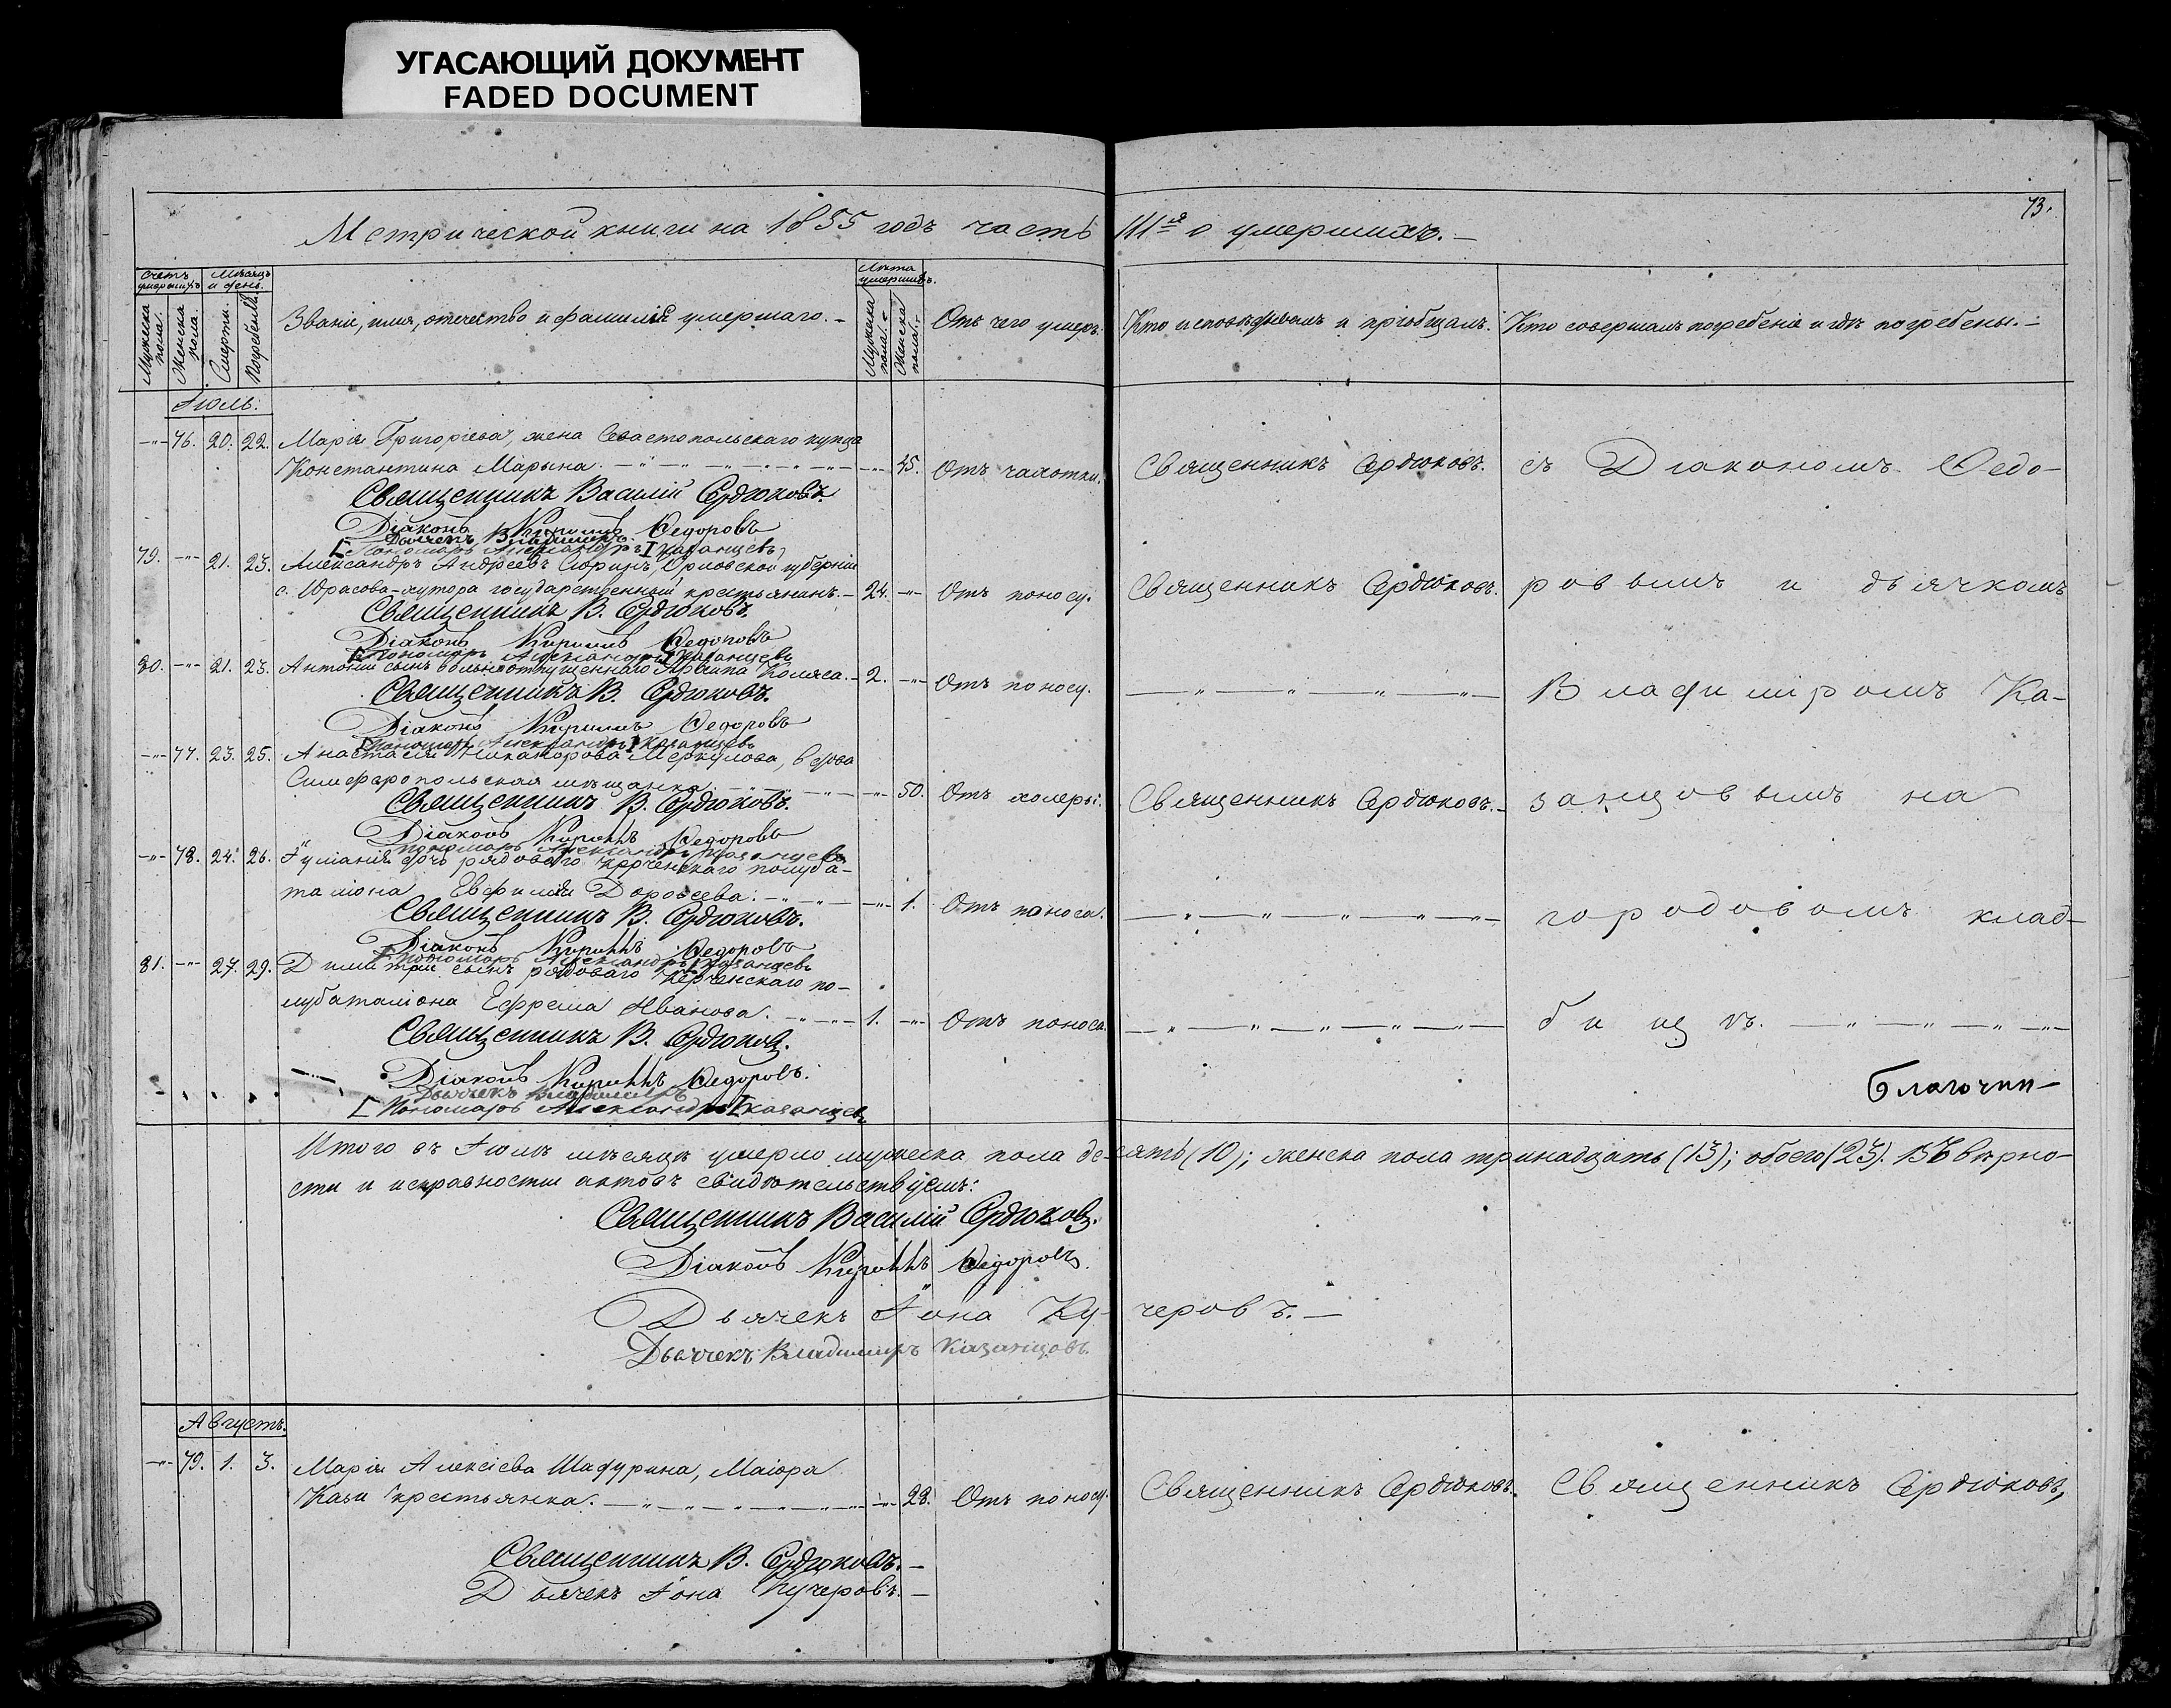 УГАСАЮЩИЙ ДОКУМЕНТ
FADED DOCUMENT
73.
Метрической книги на 1855 годъ часть IIIя о умершихъ. —
Счетъ умершихъ
Мѣсяцъ и день.
Мужеска пола.
Женска пола.
Смерти.
Погребенія.
Званіе, имя, отечество и фамилія умершаго. —
Лѣта умершихъ.
Мужеска пола. —
Женска пола. —
Отъ чего умеръ.
Кто исповѣдывалъ и пріобщалъ.
Кто совершалъ погребеніе и гдѣ погребены. —
Іюль.
—"— 76. 20. 22. Марія Григоріева, жена Севастопольскаго купца
Константина Марына. —"— 45. Отъ чахотки. Священникъ Сердюковъ. съ Діакономъ Ѳедо-
Священникъ Василій Сердюковъ.
Діаконъ Кириллъ Ѳедоровъ
Дьячекъ Владимиръ
Пономарь Александръ Казанцевъ
79. —"— 21. 23. Александръ Андреевъ Сюринъ, Орловской губерніи
с. Юрасова-хутора государственный крестьянинъ. — 24. —"— Отъ поносу. Священникъ Сердюковъ. ровымъ и дьячкомъ
Священникъ В. Сердюковъ.
Діаконъ Кириллъ Ѳедоровъ
Пономарь Александръ Казанцевъ
80. —"— 21. 23. Антоній сынъ вольноотпущеннаго Архипа Коляса. — 2. —"— Отъ поносу. —"— Владиміромъ Ка-
Священникъ В. Сердюковъ.
Діаконъ Кириллъ Ѳедоровъ
Пономарь Александръ Казанцевъ
—"— 77. 23. 25. Анастасія Никанорова Меркулова, вдова
Симферопольская мѣщанка. —"— 50. Отъ холеры. Священникъ Сердюковъ. — занцовымъ на
Священникъ В. Сердюковъ.
Діаконъ Кириллъ Ѳедоровъ
Пономарь Александръ Казанцевъ
—"— 78. 24. 26. Іуліанія дочь рядоваго Керченскаго полуба-
таліона Евфимія Дороѳеева. —"— 1. Отъ поноса. —"— городовомъ клад-
Священникъ В. Сердюковъ.
Діаконъ Кириллъ Ѳедоровъ
Пономарь Александръ Казанцевъ
81. —"— 27. 29. Димитрій сынъ рядоваго Керченскаго по-
лубаталіона Ефрема Иванова. —"— 1. —"— Отъ поноса. —"— бищѣ. —"—
Священникъ В. Сердюковъ.
Діаконъ Кириллъ Ѳедоровъ.
Дьячекъ Владимиръ
Пономарь Александръ Казанцевъ
Благочин-
Итого въ Іюлѣ мѣсяцѣ умерло мужеска пола десять (10); женска пола тринадцать (13); обоего (23). Въ вѣрно-
сти и исправности актовъ свидѣтельствуемъ:
Священникъ Василій Сердюковъ.
Діаконъ Кириллъ Ѳедоровъ
Дьячекъ Іона Кучеровъ. —
Дьячекъ Владимиръ Казанцовъ
Августъ.
—"— 79. 1. 3. Марія Алексіева Шафурина, Маіора
Каши крестьянка. —"— 28. Отъ поносу. Священникъ Сердюковъ. Священникъ Сердюковъ,
Священникъ В. Сердюковъ. —
Дьячекъ Іона Кучеровъ. —